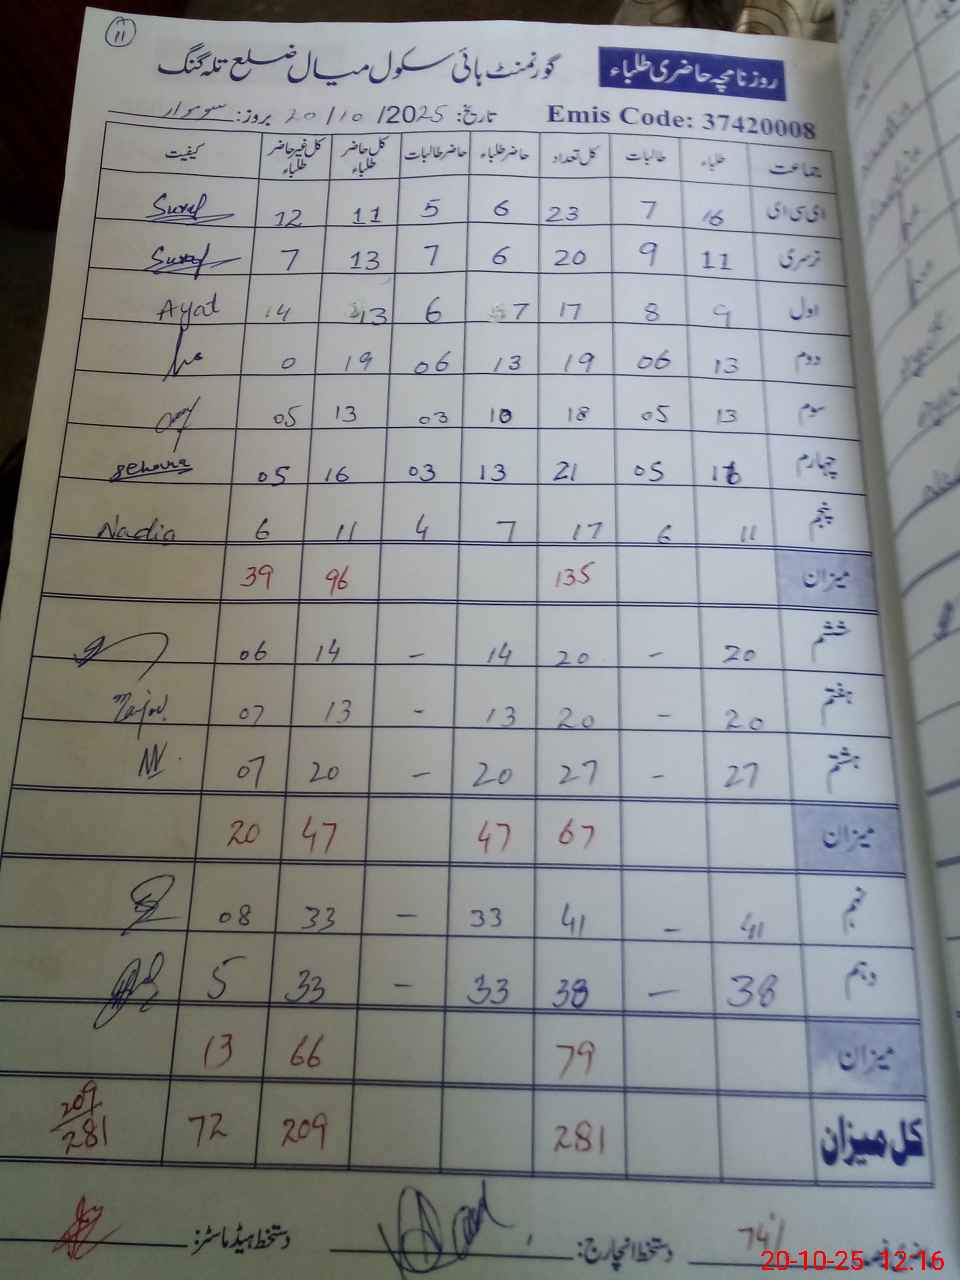 11
روزنامچہ حاضری طلباء گورنمنٹ ہائی سکول میال ضلع تلہ گنگ
Emis Code: 37420008 تاریخ: 20/10/2025 بروز: سوموار
جماعت طلباء طالبات کل تعداد حاضر طلباء حاضر طالبات کل حاضر طلباء کل غیر حاضر طلباء کیفیت
ای سی ای 16 7 23 6 5 11 12
نرسری 11 9 20 6 7 13 7
اول 9 8 17 7 6 13 4 Ayat
دوم 13 06 19 13 06 19 0
سوم 13 05 18 10 03 13 05
چہارم 16 05 21 13 03 16 05
پنجم 11 6 17 7 4 11 6 Nadia
میزان 135 96 39
ششم 20 - 20 14 - 14 06
ہفتم 20 - 20 13 - 13 07
ہشتم 27 - 27 20 - 20 07
میزان 67 47 47 20
نہم 41 - 41 33 - 33 08
دہم 38 - 38 33 - 33 5
میزان 79 66 13
کل میزان 281 209 72 209/281
74% دستخط انچارج: دستخط ہیڈ ماسٹر:
20-10-25 12:16